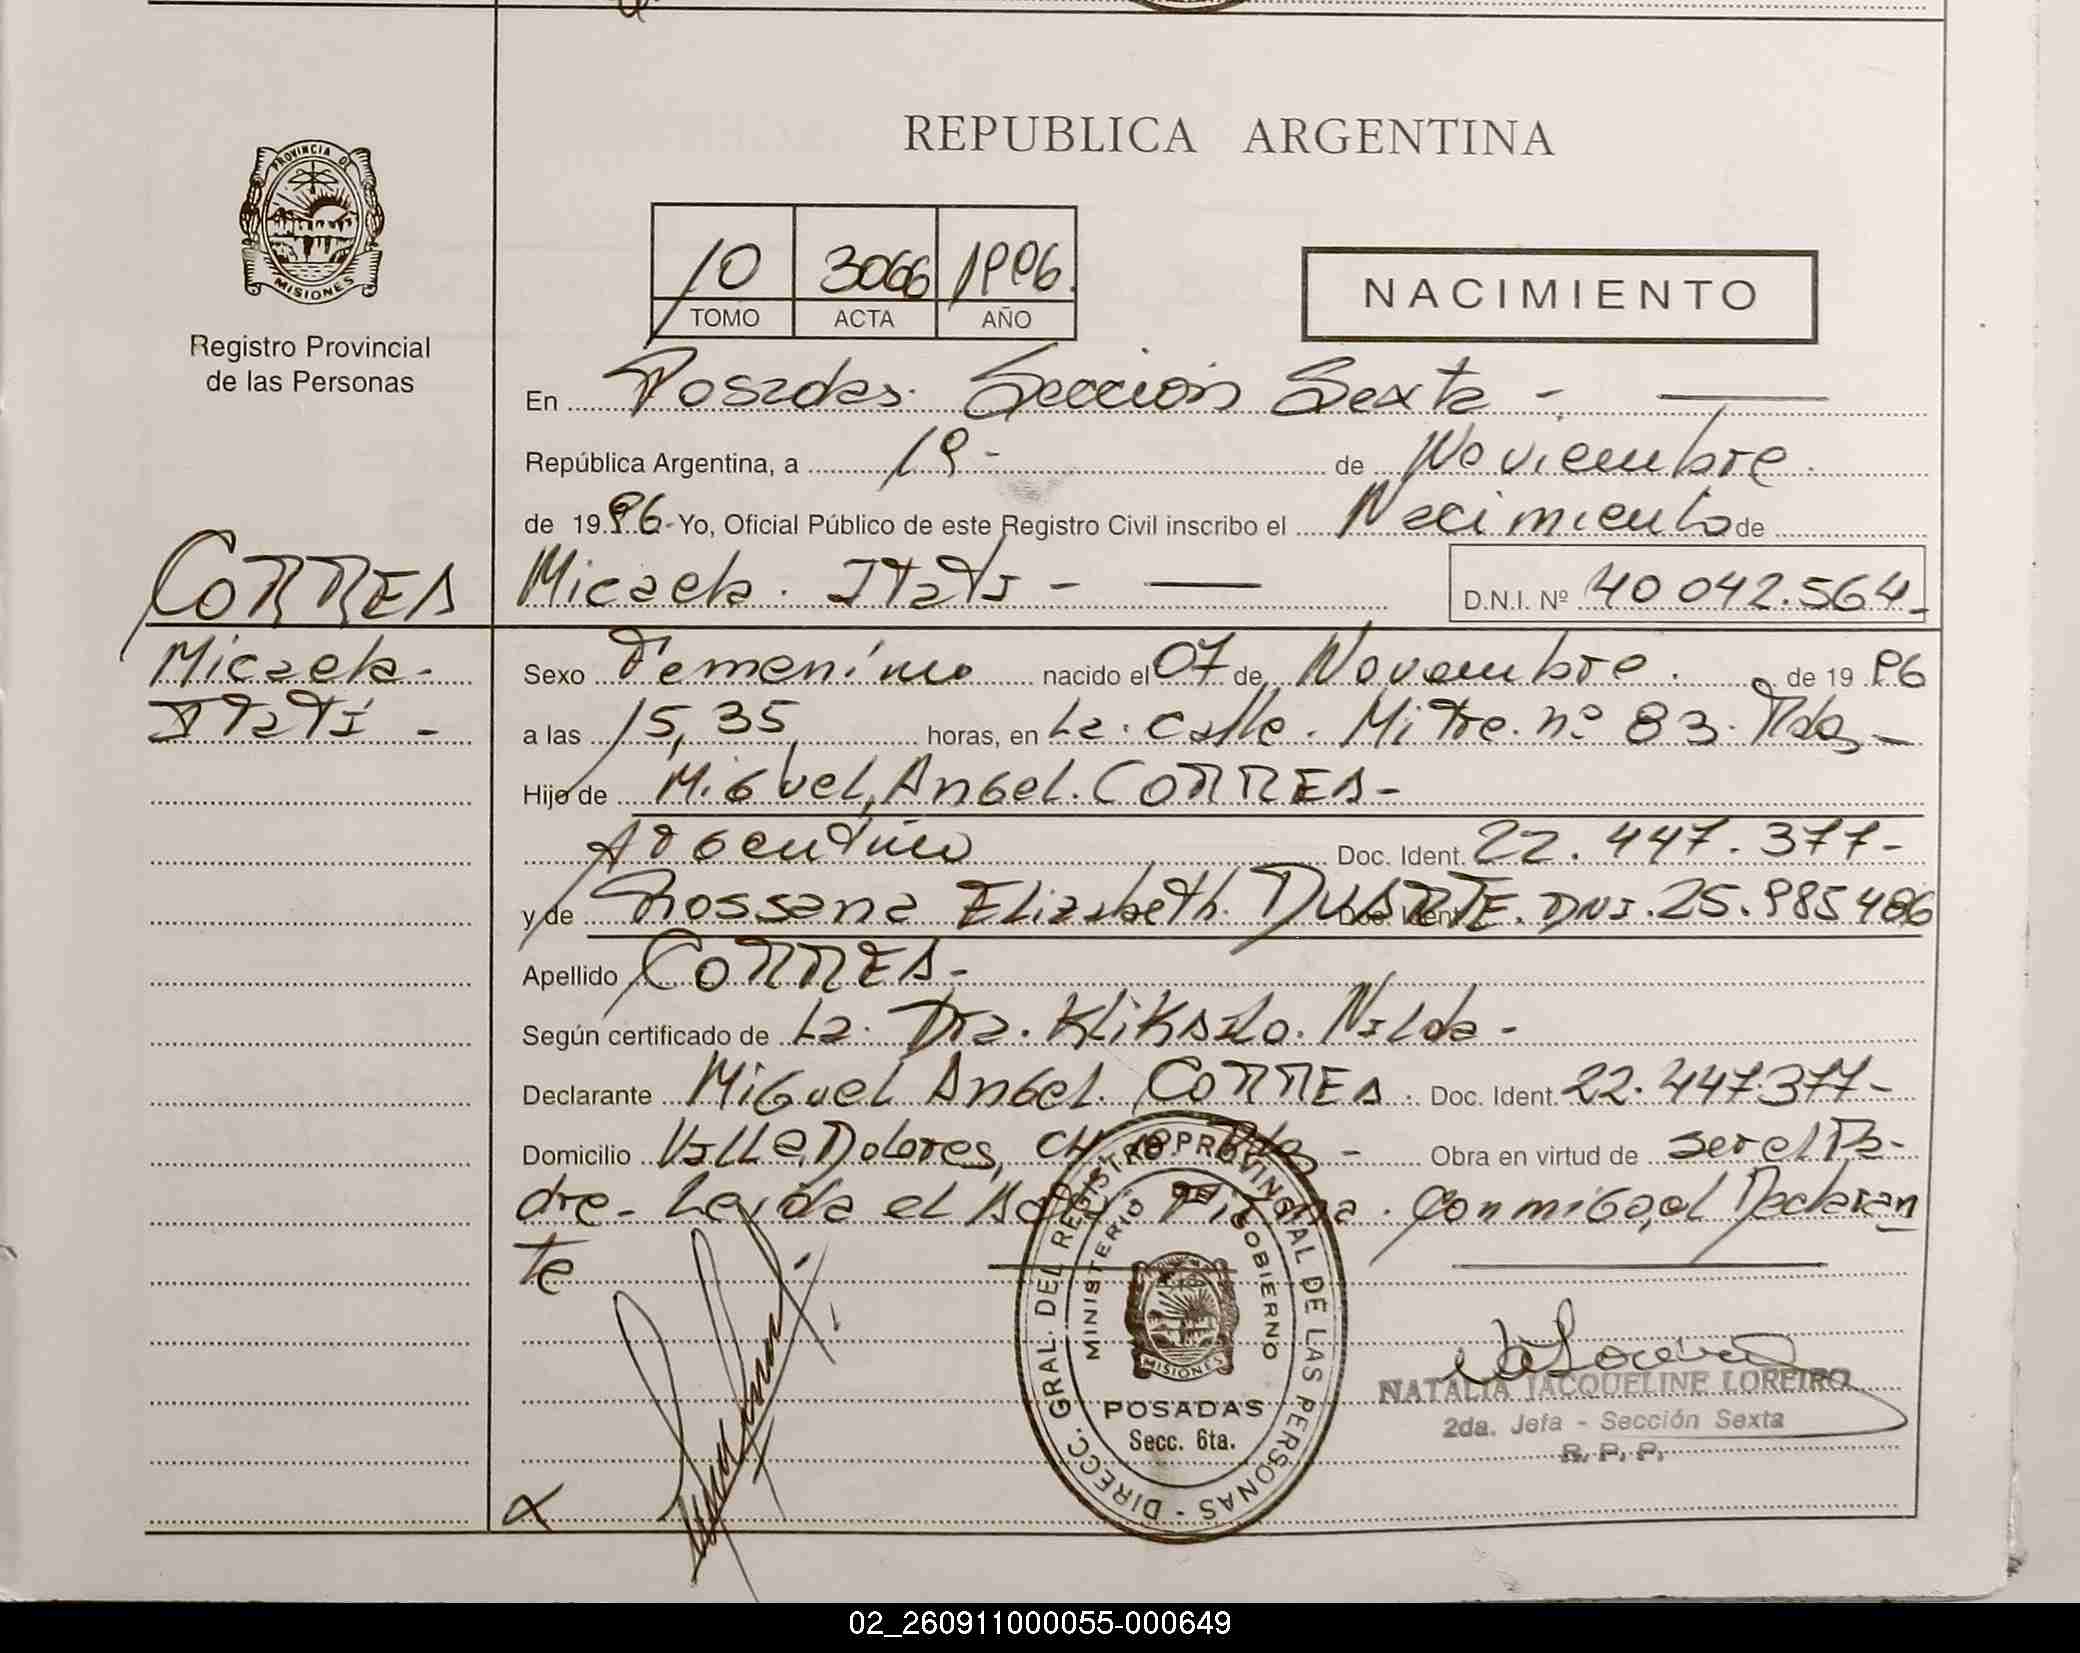 REPUBLICA ARGENTINA
PROVINCIA DE
MISIONES
Registro Provincial
de las Personas
10 3066 1996.
TOMO ACTA AÑO
NACIMIENTO
En Posadas. Sección Sexta -
República Argentina, a 19- de Noviembre.
de 1996-Yo, Oficial Público de este Registro Civil inscribo el Nacimiento de
CORREA Micaela. Itatí - D.N.I. Nº 40 042.564-
Micaela- Sexo Femenino nacido el 07 de Noviembre. de 1996
Itatí - a las 15,35 horas, en La. calle. Mitre. nº 83. Pdas-
Hijo de Miguel, Angel. CORREA-
Argentino Doc. Ident. 22.447.377-
y de Rossana Elizabeth. DUARTE. DNI. 25.985486
Apellido CORREA-
Según certificado de La. Dra. Nilda-
Declarante Miguel Angel. CORREA. Doc. Ident. 22.447.377-
Domicilio Villa Dolores, Pdas - Obra en virtud de ser el Pa-
dre- Leída el Acta Firma. Conmigo, el Declaran
te
DIRECC. GRAL. DEL REGISTRO PROVINCIAL DE LAS PERSONAS -
MINISTERIO DE GOBIERNO
MISIONES
POSADAS
Secc. 6ta.
NATALIA JACQUELINE LOREIRO
2da. Jefa - Sección Sexta
R. P. P.
02_260911000055-000649